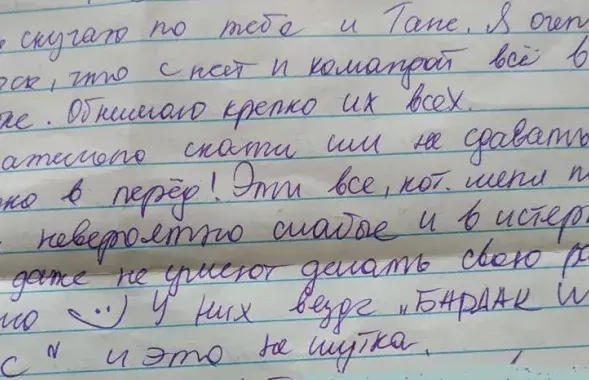 скучаю по тебе и Тане. Я очен
что с нет и командой всё в
же. Обнимаю крепко их всех.
скати им не сдавать
но в перёд! Эти все, кот. меня п
невероятно слабые и в истер
даже не умеют делать свою ра
но :) У них везде „БАРДАК И
С" и это не шутка.